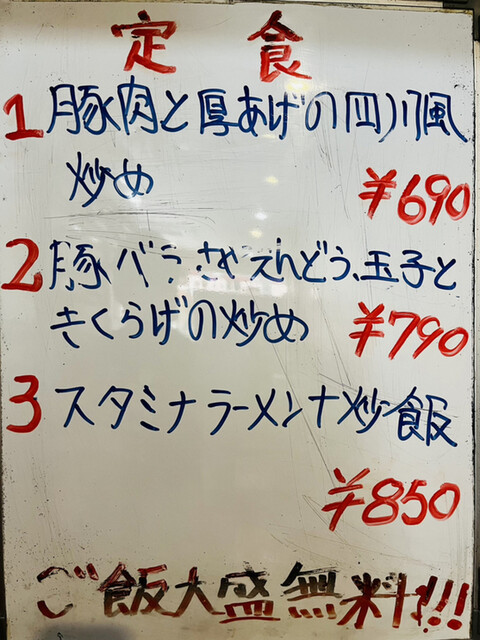 定食
1 豚肉と厚あげの四川風
炒め
¥690
2 豚バラ、さやえんどう、玉子と
きくらげの炒め ¥790
3 スタミナラーメン+炒飯
¥850
ご飯大盛無料!!!